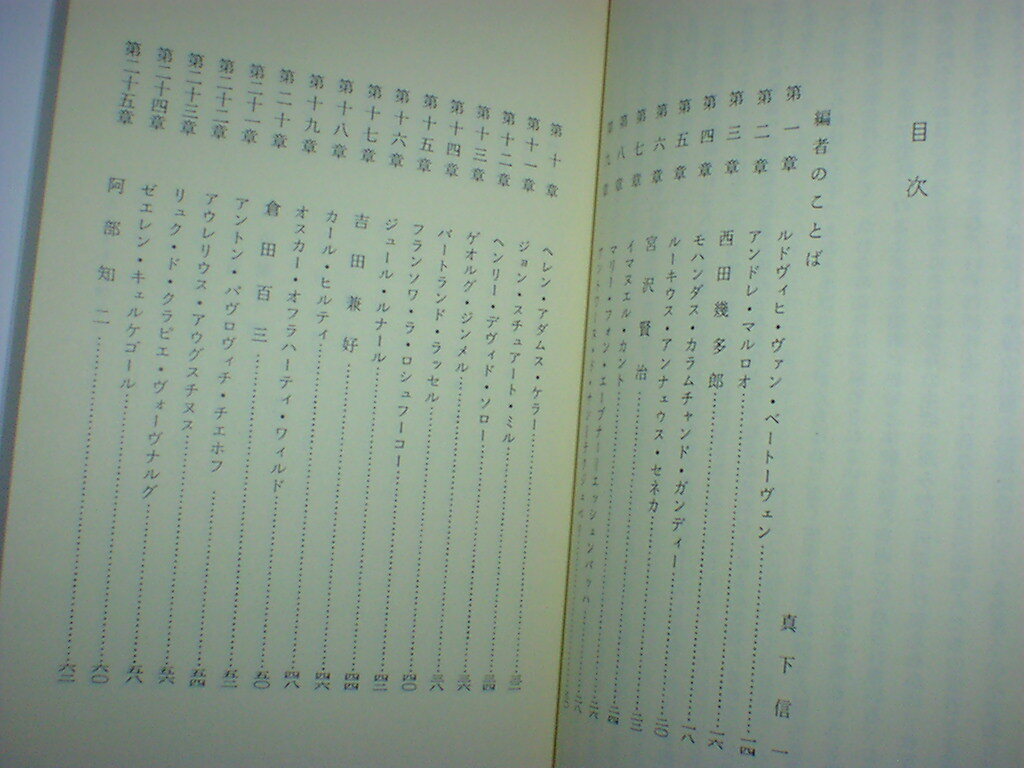 目次
編者のことば 真下信一
第一章 ルドヴィヒ・ヴァン・ベートーヴェン……一四
第二章 アンドレ・マルロオ……一六
第三章 西田幾多郎……一八
第四章 モハンダス・カラムチャンド・ガンディー……二〇
第五章 ルーキウス・アンナェウス・セネカ……二二
第六章 宮沢賢治……二四
第七章 イマヌエル・カント……二六
第八章 マリー・フォン・エーブナー・エッシェンバッハ……二八
第九章
第十章 ヘレン・アダムス・ケラー……三二
第十一章 ジョン・スチュアート・ミル……三四
第十二章 ヘンリー・デヴィド・ソロー……三六
第十三章 ゲオルグ・ジンメル……三八
第十四章 バートランド・ラッセル……四〇
第十五章 フランソワ・ラ・ロシュフーコー……四二
第十六章 ジュール・ルナール……四四
第十七章 吉田兼好……四六
第十八章 カール・ヒルティ……四八
第十九章 オスカー・オフラハーティ・ワイルド……五〇
第二十章 倉田百三……五二
第二十一章 アントン・パヴロヴィチ・チエホフ……五四
第二十二章 アウレリウス・アウグスチヌス……五六
第二十三章 リュク・ド・クラピエ・ヴォーヴナルグ……五八
第二十四章 ゼエレン・キェルケゴール……六〇
第二十五章 阿部知二……六二